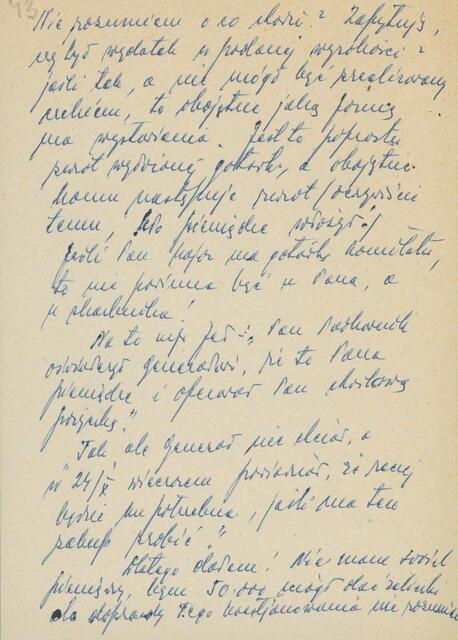 43
Nie rozumiem o co chodzi? Zapytuję,
czy był wydatek w podanej wysokości?
jeśli tak, a nie mógł być zrealizowany
czekiem, to obojętne jaką formę
ma wystawienia. Jest to poprostu
zwrot wydanej gotówki, a obojętnie
komu następuje zwrot (oczywiście
temu, kto pieniądze włożył!)
Jeśli Pan major ma gotówkę Komitetu,
to nie powinna być u Pana, a
u skarbnika!
Na to mjr "Pan Radkownik
oświadczył Generałowi, że to Pana
pieniądze i oferował Pan chwilową
pożyczkę"
Tak ale Generał nie chciał, a
w 24/X wieczorem powiedział, że raczej
będzie mu potrzebna, jeśli ma ten
zakup zrobić."
Dlatego dałem! Nie mam swoich
pieniędzy, bym 50.000 mógł dać zaliczki
ale doprawdy tego nie rozumiem